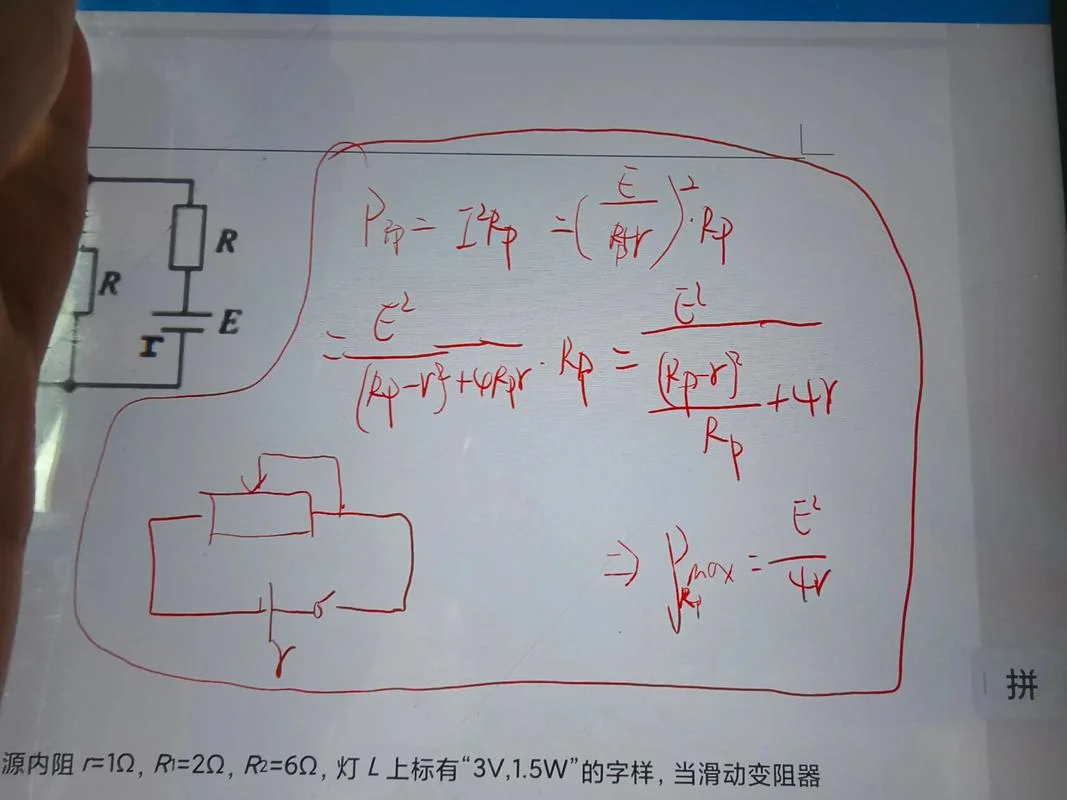 P_{Rp} = I²Rp = (E/(Rp+r))²·Rp
R
R
E
r
= E²/((Rp-r)²+4Rpr) · Rp = E²/((Rp-r)²/Rp + 4r)
⇒ P_{Rp}max = E²/4r
r
拼
源内阻 r=1Ω, R1=2Ω, R2=6Ω, 灯 L 上标有“3V,1.5W”的字样, 当滑动变阻器